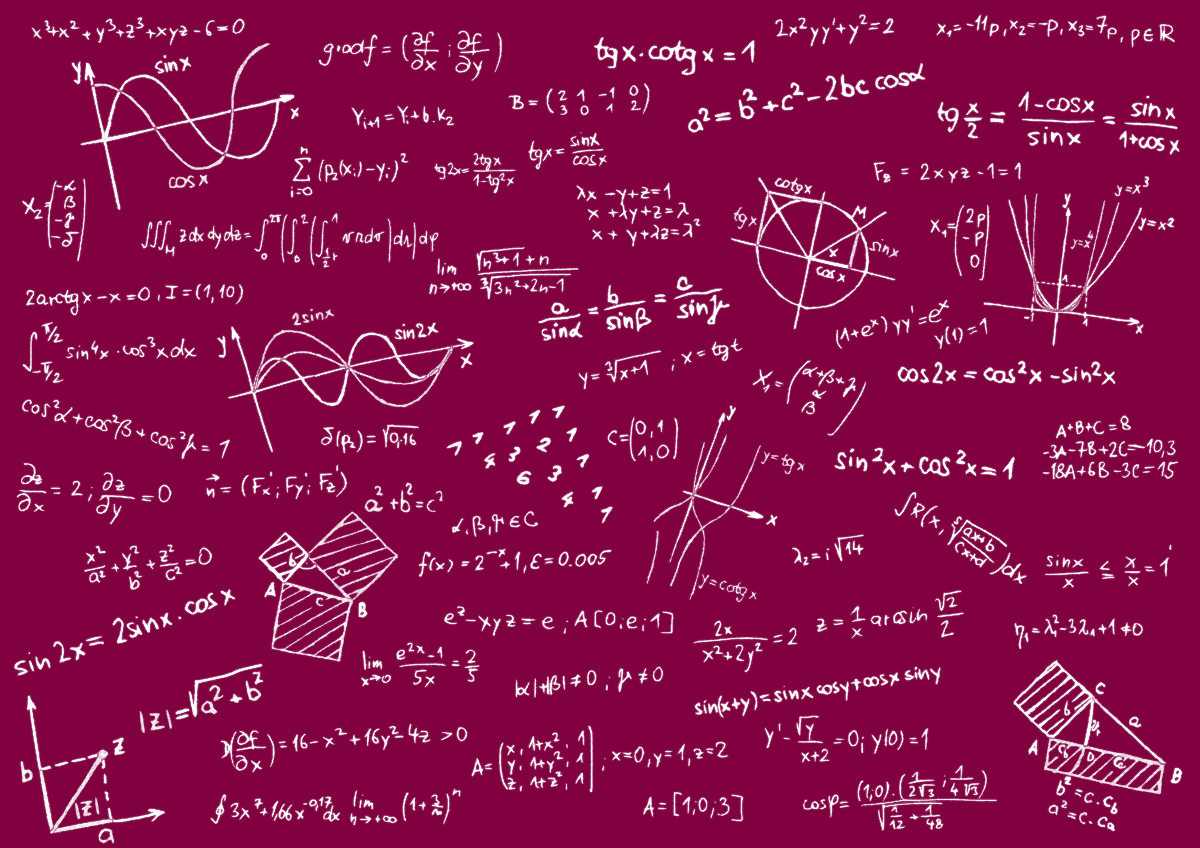 x³+x²+y³+z³+xyz-6=0
gradf = (∂f/∂x ; ∂f/∂y)
tgx·cotgx = 1
2x²yy'+y²=2
x₁=-11p, x₂=-p, x₃=7p, p∈ℝ
y
sinx
x
cosx
Yᵢ₊₁ = Yᵢ+b·k₂
B = (2 1 -1 0
3 0 1 2)
a² = b²+c²-2bc cosα
tg x/2 = (1-cosx)/sinx = sinx/(1+cosx)
∑ᵢ₌₀ⁿ (p₂(xᵢ)-yᵢ)²
tg2x = 2tgx/(1-tg²x)
tgx = sinx/cosx
F₂ = 2xyz-1=1
X₂ = (-α
β
-γ
-δ)
λx-y+z=1
x+λy+z=λ
x+y+λz=λ²
cotgx
tgx
M
sinx
x
cosx
X₁ = (2p
-p
0)
y
y=x³
y=x²
y=x⁴
1
-1
1
x
lim n→+∞ (√(n³+1)+n)/∛(3n²+2n-1)
2arctgx-x=0, I=(1,10)
a/sinα = b/sinβ = c/sinγ
(1+eˣ)yy'=eˣ
y(1)=1
∫₋π/₂^π/2 sin⁴x·cos³xdx
y
2sinx
sin2x
x
y=∛(x+1) ; x=tgt
X₁ = (α+β+γ
α
β)
cos2x = cos²x-sin²x
cos²α+cos²β+cos²γ=1
δ(p₂)=√0,16
1 1 1 1 1
4 3 2 1
6 3 1
4 1
1
C = (0,1
1,0)
y
y=tgx
x
y=cotgx
sin²x+cos²x=1
A+B+C=8
-3A-7B+2C=-10,3
-18A+6B-3C=15
∂z/∂x = 2; ∂z/∂y = 0
n⃗ = (Fx'; Fy'; Fz')
a²+b²=c²
α,β,γ∈C
∫R(x, ⁵√((ax+b)/(cx+d)))dx
x²/a²+y²/b²+z²/c²=0
b
a
A
c
B
f(x)=2⁻ˣ+1, ε=0.005
λ₂=i√14
sinx/x ≤ x/x = 1
sin2x = 2sinx·cosx
eᶻ-xyz=e; A[0;e;1]
2x/(x²+2y²)=2
z=1/x arcsin √2/2
η₁=λ₁²-3λ₁+1≠0
lim x→0 (e²ˣ-1)/5x = 2/5
|α|+|β|≠0 ; γ≠0
|z|=√(a²+b²)
sin(x+y)=sinx cosy+cosx siny
C
b
a
A
D
B
b²=c·c_b
a²=c·c_a
z
b
|z|
a
(∂f/∂x)=16-x²+16y²-4z>0
A = (x, 1+x², 1
y, 1+y², 1
z, 1+z², 1) ; x=0, y=1, z=2
y'-√y/(x+2)=0; y(0)=1
∮3x⁷+1,66x⁻⁰·¹⁷dx
lim n→+∞ (1+3/n)ⁿ
A=[1;0;3]
cosφ=((1;0)·(1/2√3 ; 1/4√3))/√(1/12+1/48)